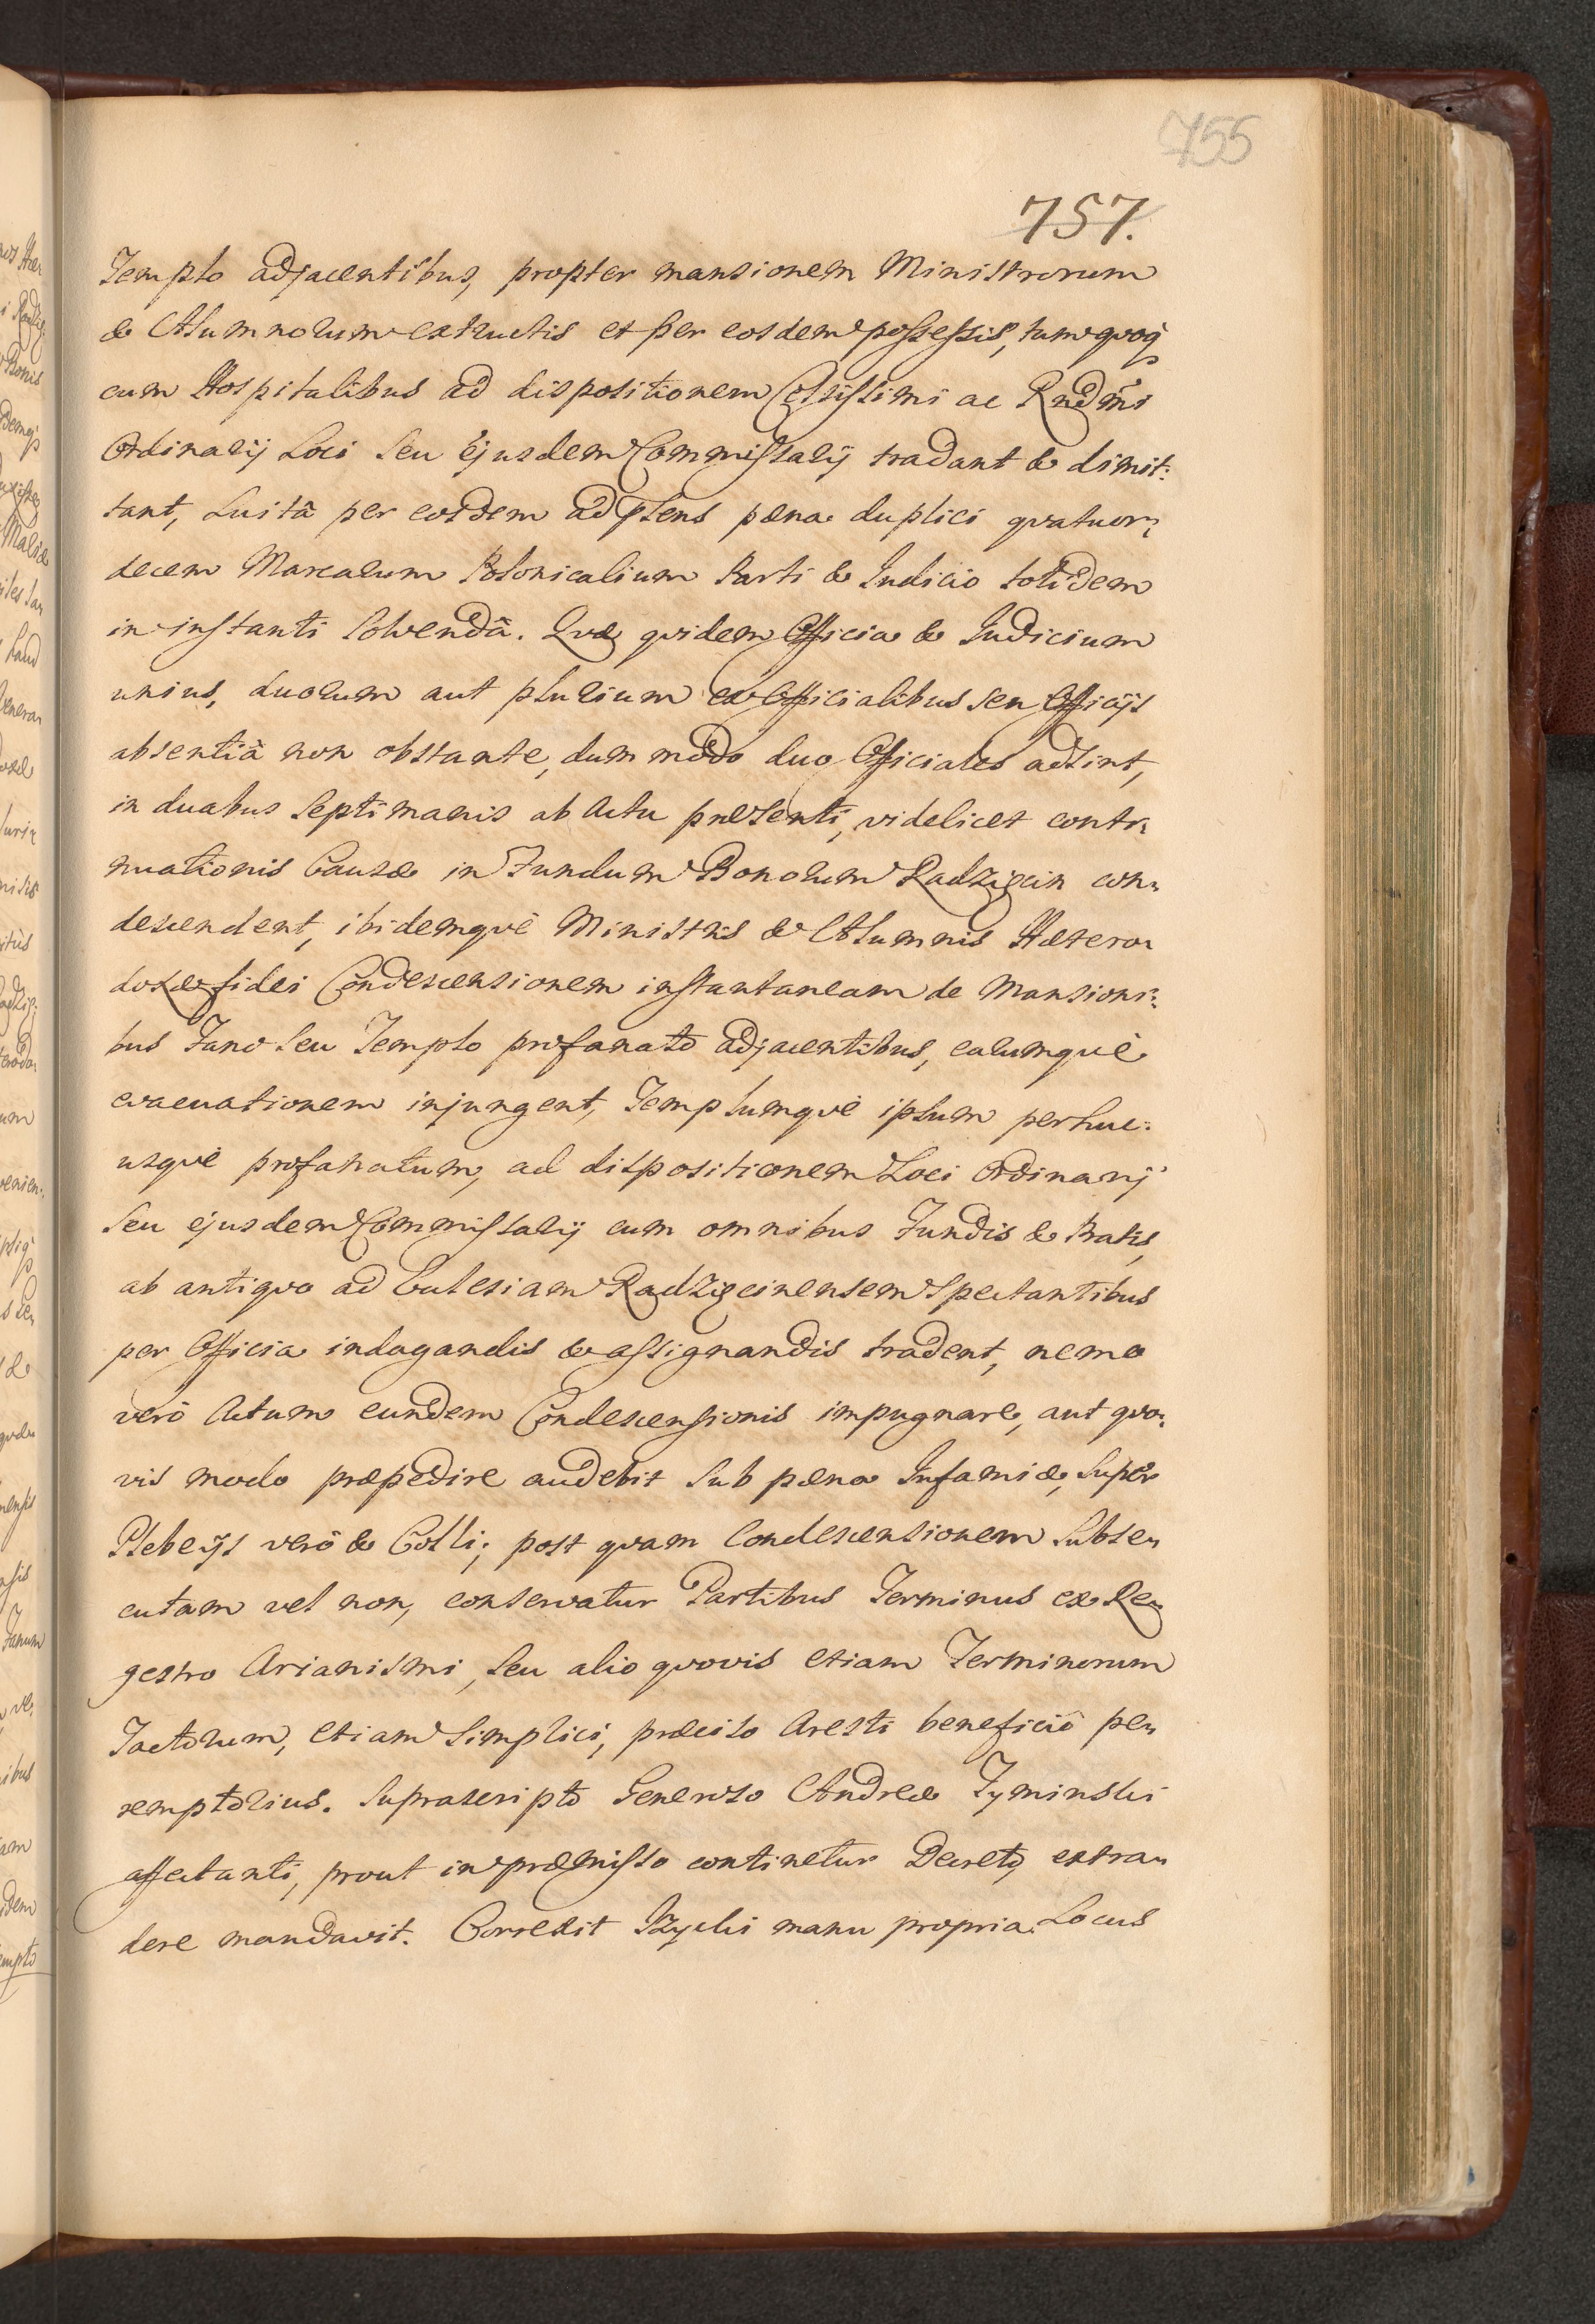 755
757.
Templo adjacentibus, propter mansionem Ministrorum
& Alumnorum extructis et per eosdem possessis, tum quoq
cum Hospitalibus ad dispositionem Celsissimi ac Rndmi
Ordinarij Loci seu Ejusdem Commissarij tradant & dimit:
tant, Luitâ per eosdem ad psens pæna duplici qvatuor:
decem Marcarum Polonicalium Parti & Judicio totidem
in instanti solvendâ. Qvæ qvidem Officia & Judicium
unius, duorum aut plurium ex Officialibus seu Officijs
absentiâ non obstante, dum modo duo Officiales adsint,
in duabus Septimanis ab Actu præsenti, videlicet conti:
nuationis Causæ in Fundum Bonorum Radzięcin con:
descendent, ibidemqve Ministris & Alumnis Hætero:
doxæ fidei Condescensionem instantaneam de Mansioni:
bus Fano seu Templo profanato adjacentibus, earumqve
evacuationem injungent, Templumqve ipsum perhuc:
usqve profanatum, ad dispositionem Loci Ordinarij
seu ejusdem Commissarij cum omnibus Fundis & Pratis,
ab antiqvo ad Eclesiam Radzięcinensem Spectantibus
per Officia indagandis & assignandis tradent, nemo
verò Actum eundem Condescensionis impugnare, aut qvo:
vis modo præpedire audebit sub pæna Infamiæ, super
Plebeijs verò & Colli; post qvam Condescensionem subse:
cutam vel non, conservatur Partibus Terminus ex Re:
gestro Arianismi, seu alio qvovis etiam Terminorum
Tactorum, etiam Simplici, præciso Aresti beneficiô pe:
remptorius. Suprascripto Generoso Andreæ Zyminski
affectanti, prout in præmisso continetur Decreto, extra:
dere mandavit. Correxit Iżycki manu propria. Locus